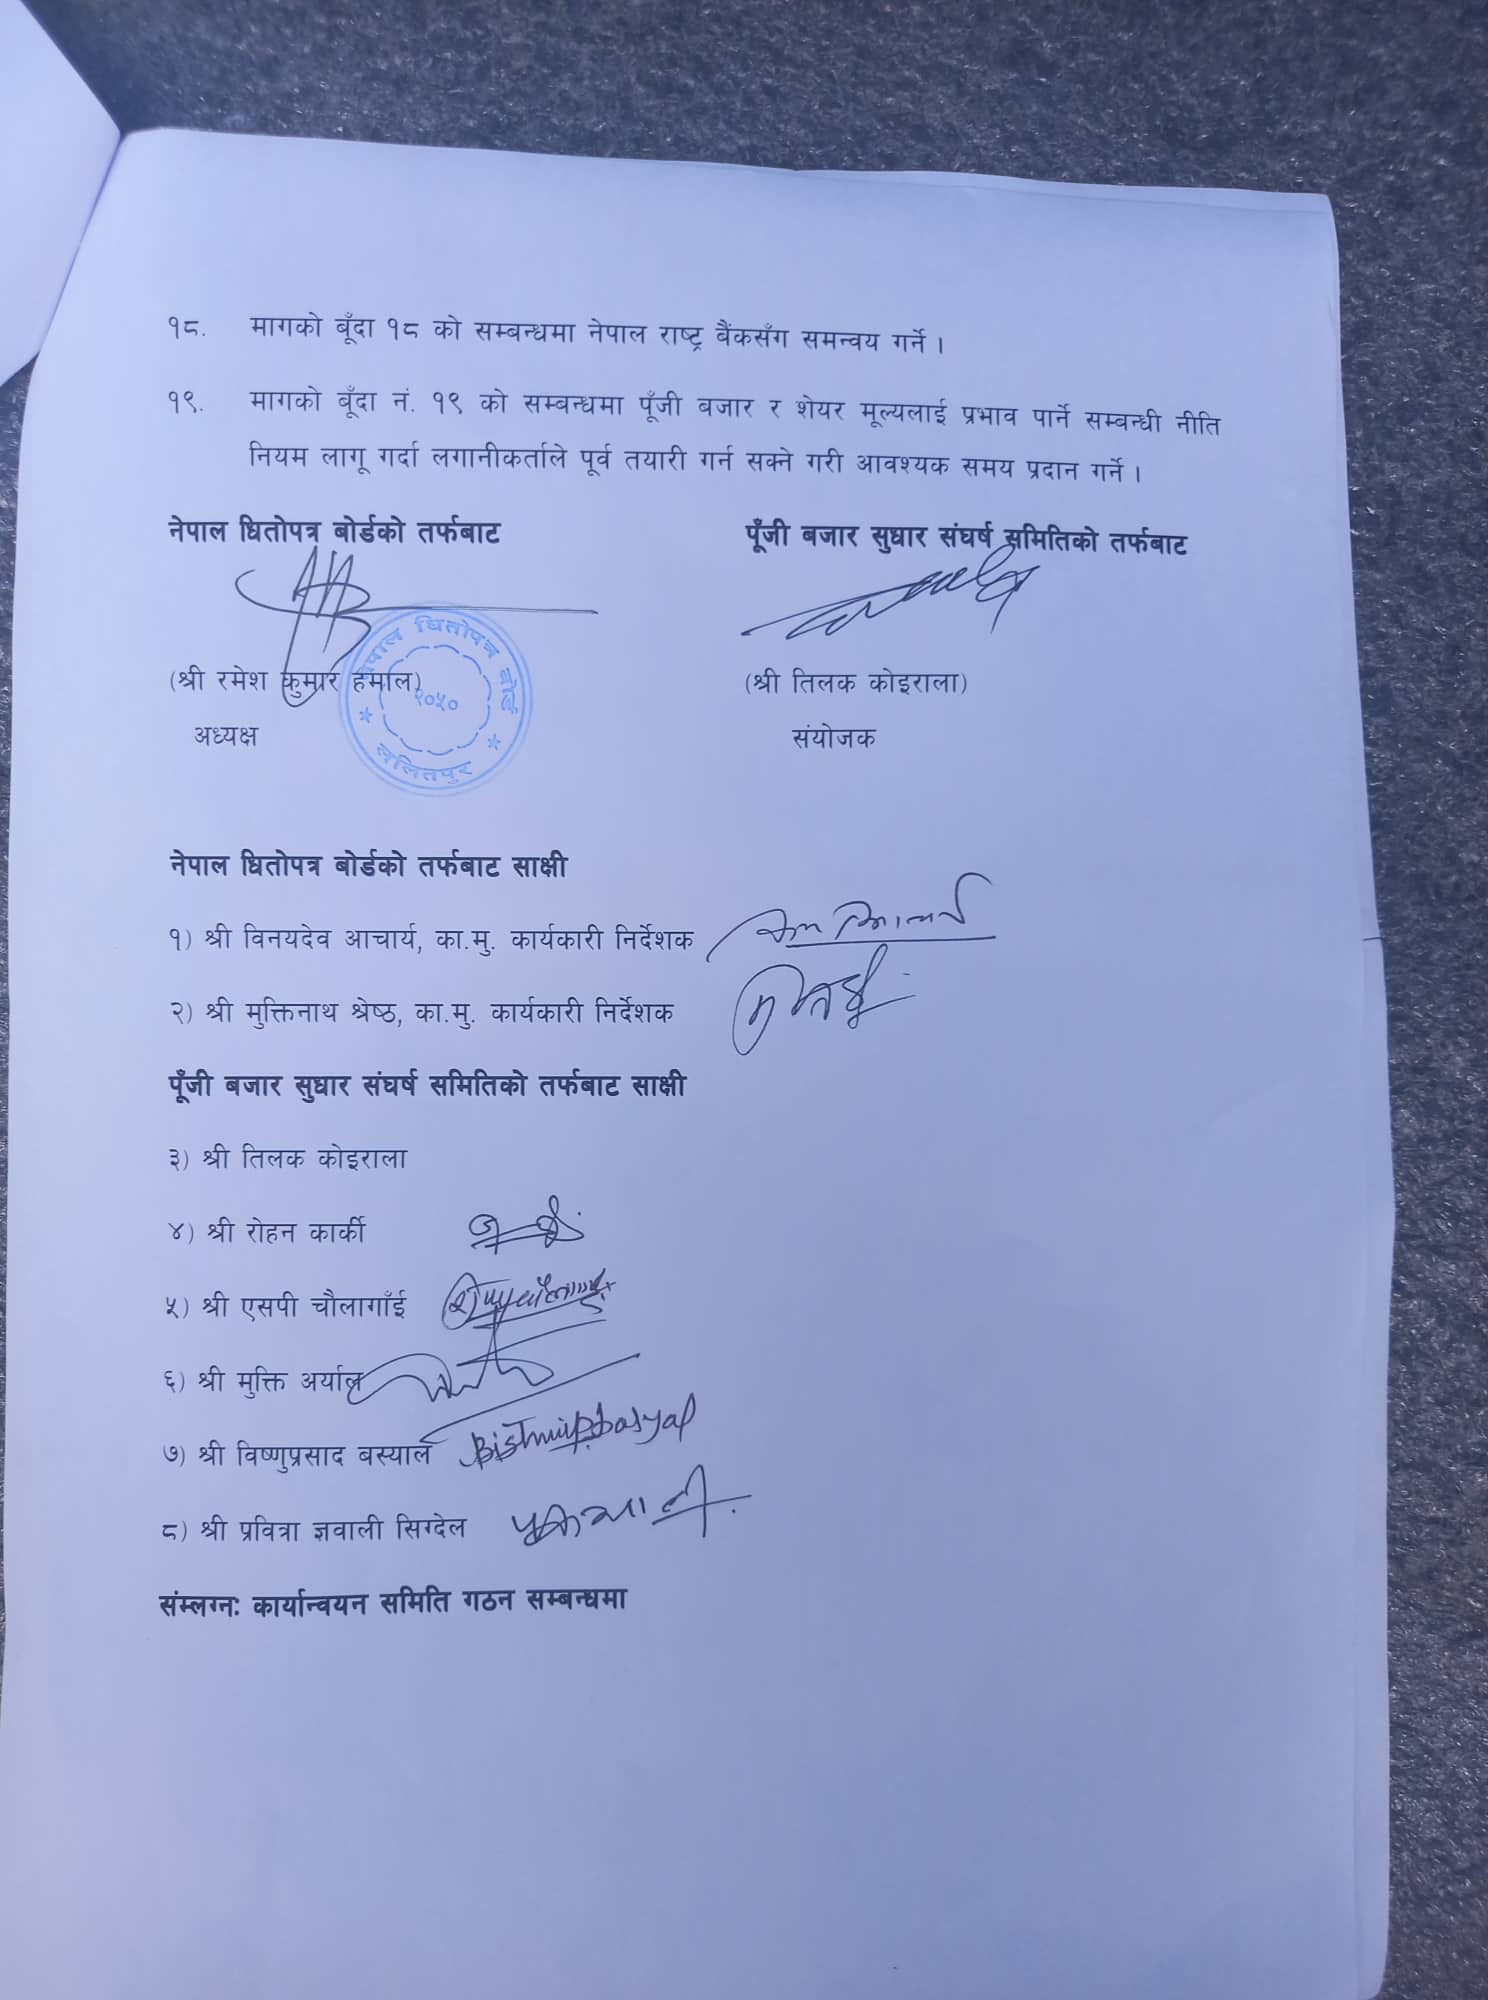 १८. मागको बूँदा १८ को सम्बन्धमा नेपाल राष्ट्र बैंकसँग समन्वय गर्ने ।
१९. मागको बूँदा नं. १९ को सम्बन्धमा पूँजी बजार र शेयर मूल्यलाई प्रभाव पार्ने सम्बन्धी नीति
नियम लागू गर्दा लगानीकर्ताले पूर्व तयारी गर्न सक्ने गरी आवश्यक समय प्रदान गर्ने ।
नेपाल धितोपत्र बोर्डको तर्फबाट
पूँजी बजार सुधार संघर्ष समितिको तर्फबाट
(श्री रमेश कुमार हमाल)
(श्री तिलक कोइराला)
अध्यक्ष
संयोजक
नेपाल धितोपत्र बोर्ड
२०५०
ललितपुर
नेपाल धितोपत्र बोर्डको तर्फबाट साक्षी
१) श्री विनयदेव आचार्य, का.मु. कार्यकारी निर्देशक
२) श्री मुक्तिनाथ श्रेष्ठ, का.मु. कार्यकारी निर्देशक
पूँजी बजार सुधार संघर्ष समितिको तर्फबाट साक्षी
३) श्री तिलक कोइराला
४) श्री रोहन कार्की
५) श्री एसपी चौलागाँई
६) श्री मुक्ति अर्याल
७) श्री विष्णुप्रसाद बस्याल Bishnup.basyal
८) श्री प्रवित्रा ज्ञवाली सिग्देल
संम्लग्न: कार्यान्वयन समिति गठन सम्बन्धमा